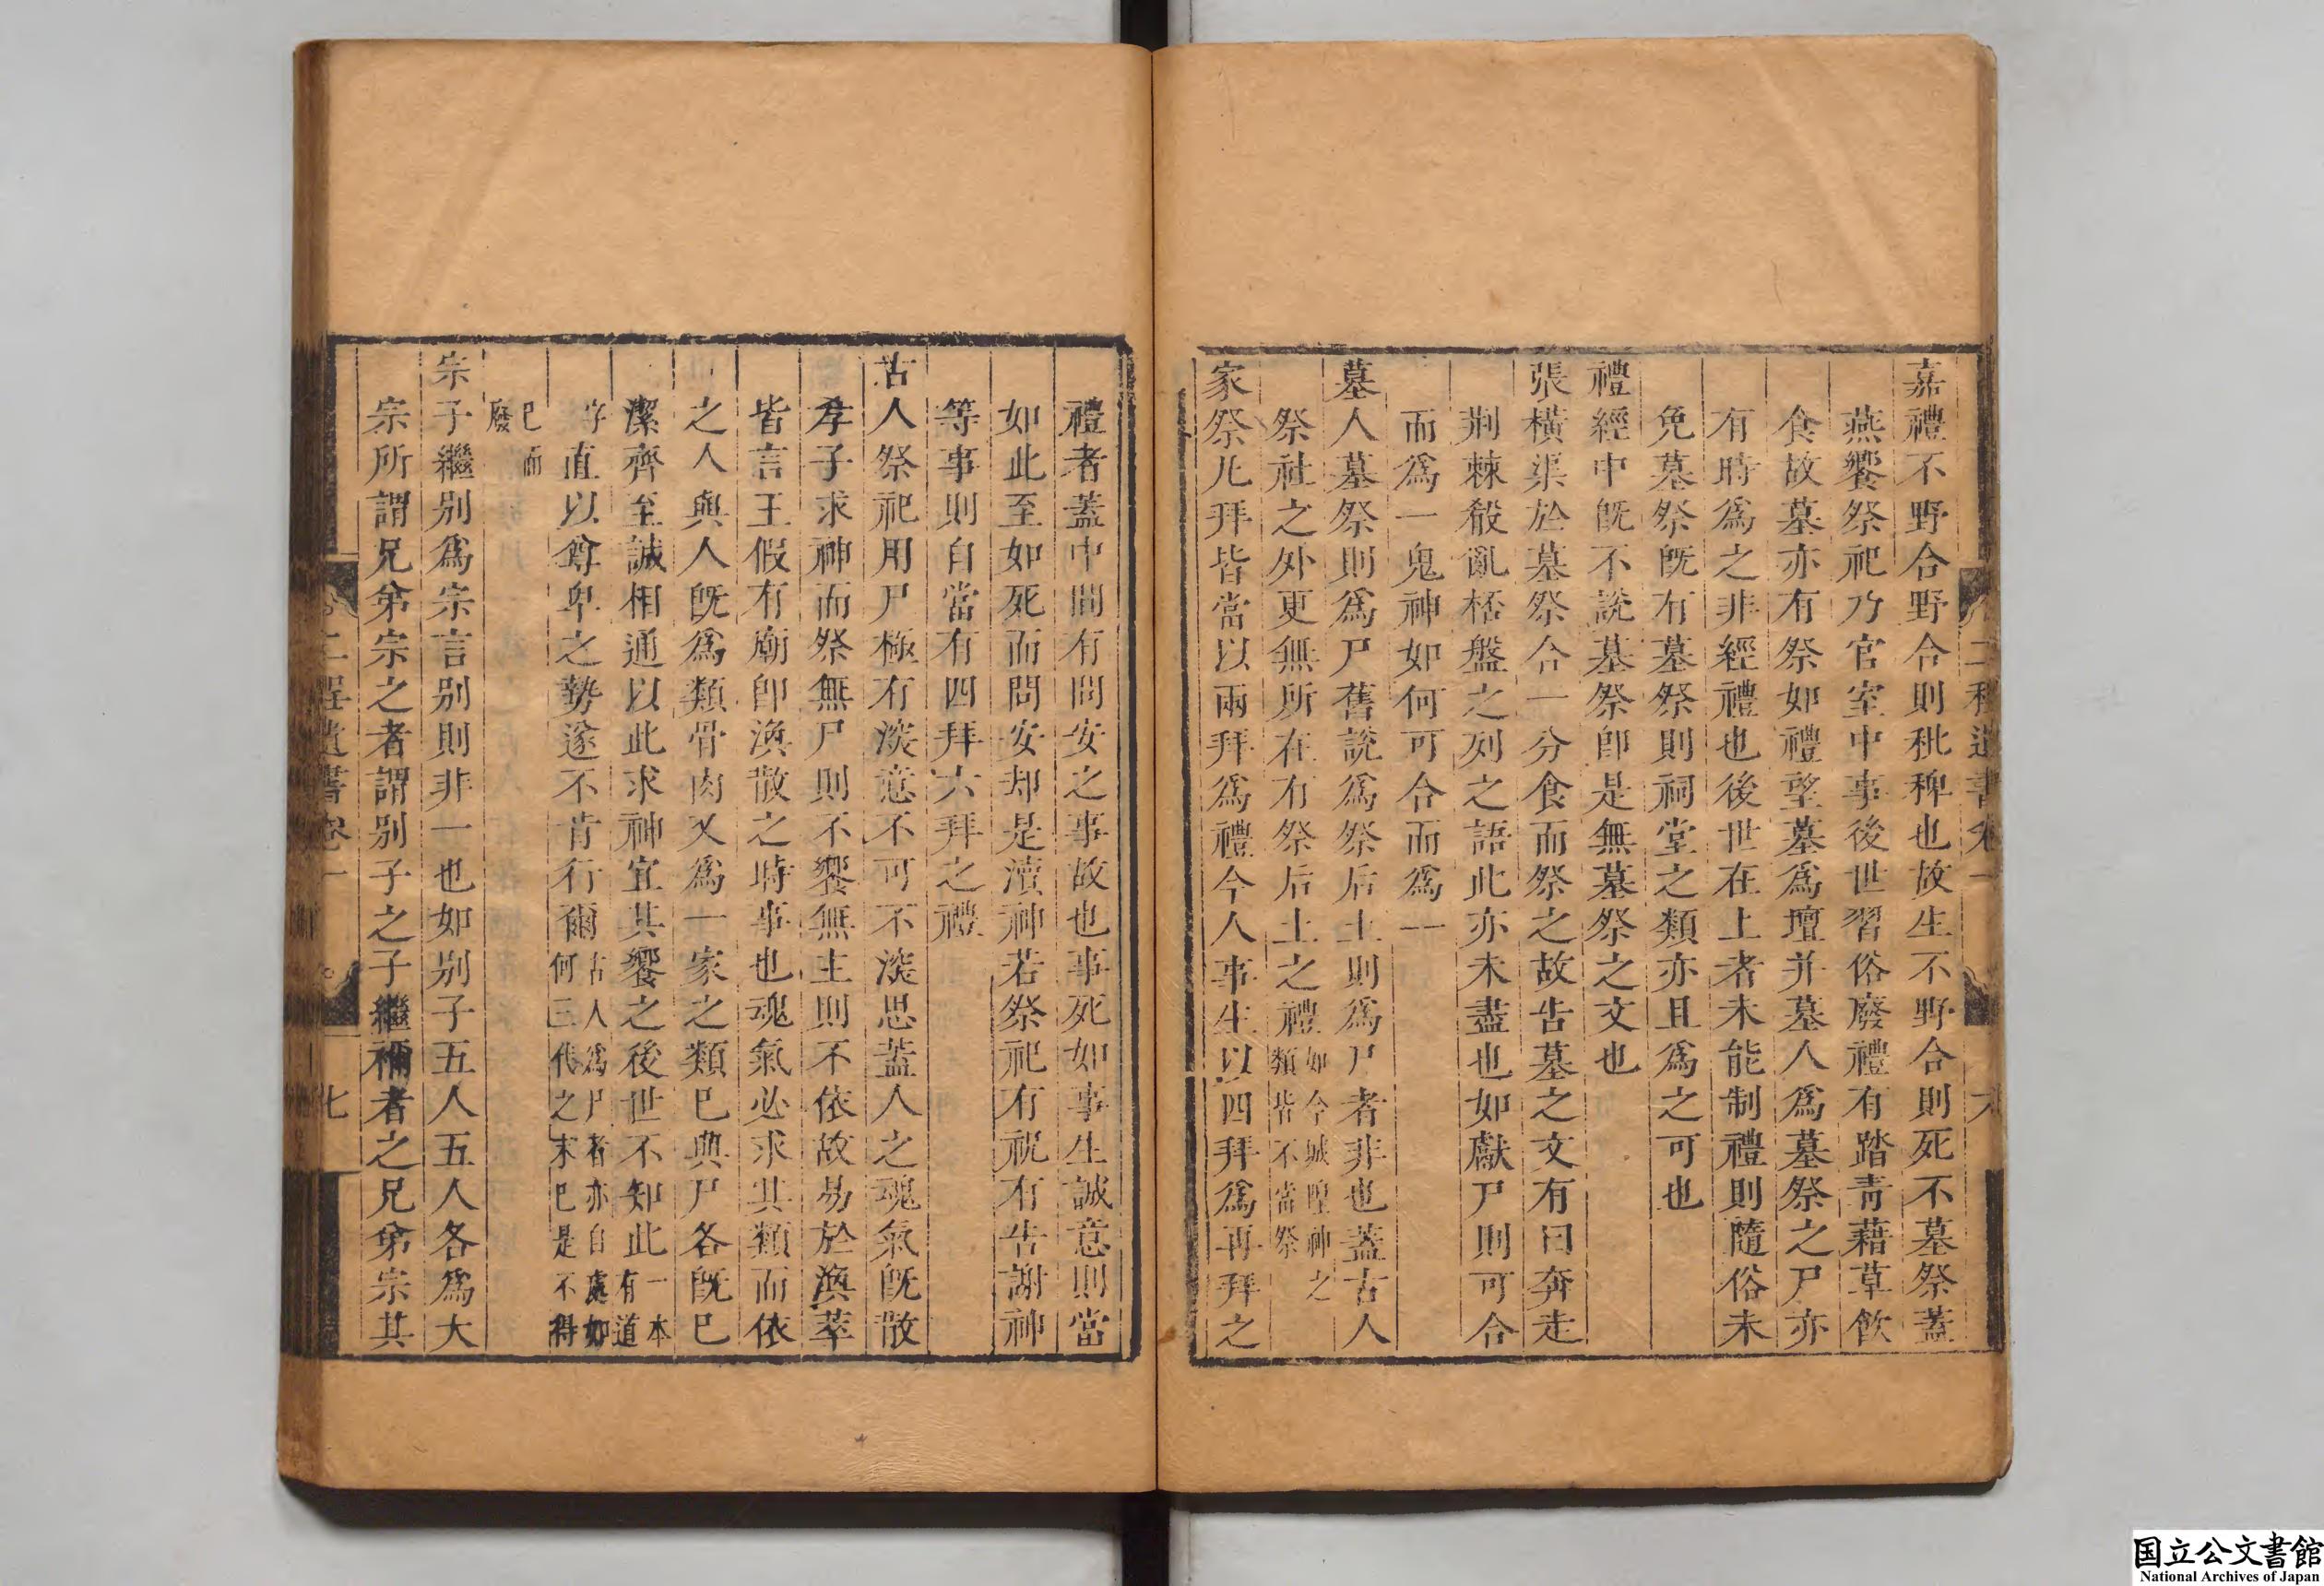 嘉禮不野合野合則秕稗也故生不野合則死不墓祭蓋
燕饗祭祀乃宮室中事後世習俗廢禮有踏青藉草飲
食故墓亦有祭如禮望墓為壇并墓人為墓祭之尸亦
有時為之非經禮也後世在上者未能制禮則隨俗未
免墓祭既有墓祭則祠堂之類亦且為之可也
禮經中既不說墓祭即是無墓祭之文也
張橫渠於墓祭合一分食而祭之故告墓之文有曰奔走
荆棘殽亂桮盤之列之語此亦未盡也如獻尸則可合
而為一鬼神如何可合而為一
墓人墓祭則為尸舊說為祭后土則為尸者非也蓋古人
祭社之外更無所在有祭后土之禮如今城隍神之類皆不當祭
家祭凡拜皆當以兩拜為禮今人事生以四拜為再拜之
二程遺書卷一 六
禮者蓋中間有問安之事故也事死如事生誠意則當
如此至如死而問安却是瀆神若祭祀有祝有告謝神
等事則自當有四拜六拜之禮
古人祭祀用尸極有深意不可不深思蓋人之魂氣既散
孝子求神而祭無尸則不饗無主則不依故易於渙萃
皆言王假有廟即渙散之時事也魂氣必求其類而依
之人與人既為類骨肉又為一家之類已與尸各既已
潔齊至誠相通以此求神宜其饗之後世不知此一本有道
字直以尊卑之勢遂不肯行爾古人為尸者亦自處如何三代之末已是不得
已而廢
宗子繼别為宗言别則非一也如别子五人五人各為大
宗所謂兄弟宗之者謂别子之子繼禰者之兄弟宗其
二程遺書卷一 七
国立公文書館
National Archives of Japan